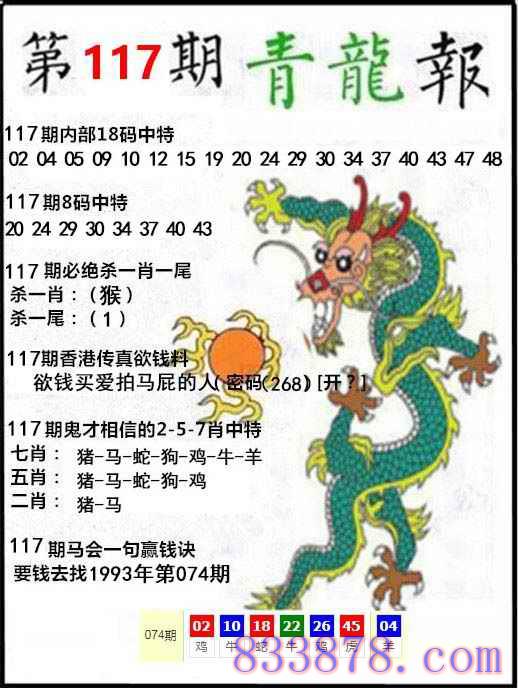 第117期青龍報
117期内部18码中特
02 04 05 09 10 12 15 19 20 24 29 30 34 37 40 43 47 48
117期8码中特
20 24 29 30 34 37 40 43
117期必绝杀一肖一尾
杀一肖：（猴）
杀一尾：（1）
117期香港传真欲钱料
欲钱买爱拍马屁的人（密码（268）[开？]
117期鬼才相信的2-5-7肖中特
七肖： 猪-马-蛇-狗-鸡-牛-羊
五肖： 猪-马-蛇-狗-鸡
二肖： 猪-马
117期马会一句赢钱诀
要钱去找1993年第074期
074期 02 10 18 22 26 45 04
鸡 牛 蛇 牛 鸡 虎 羊
833878.com